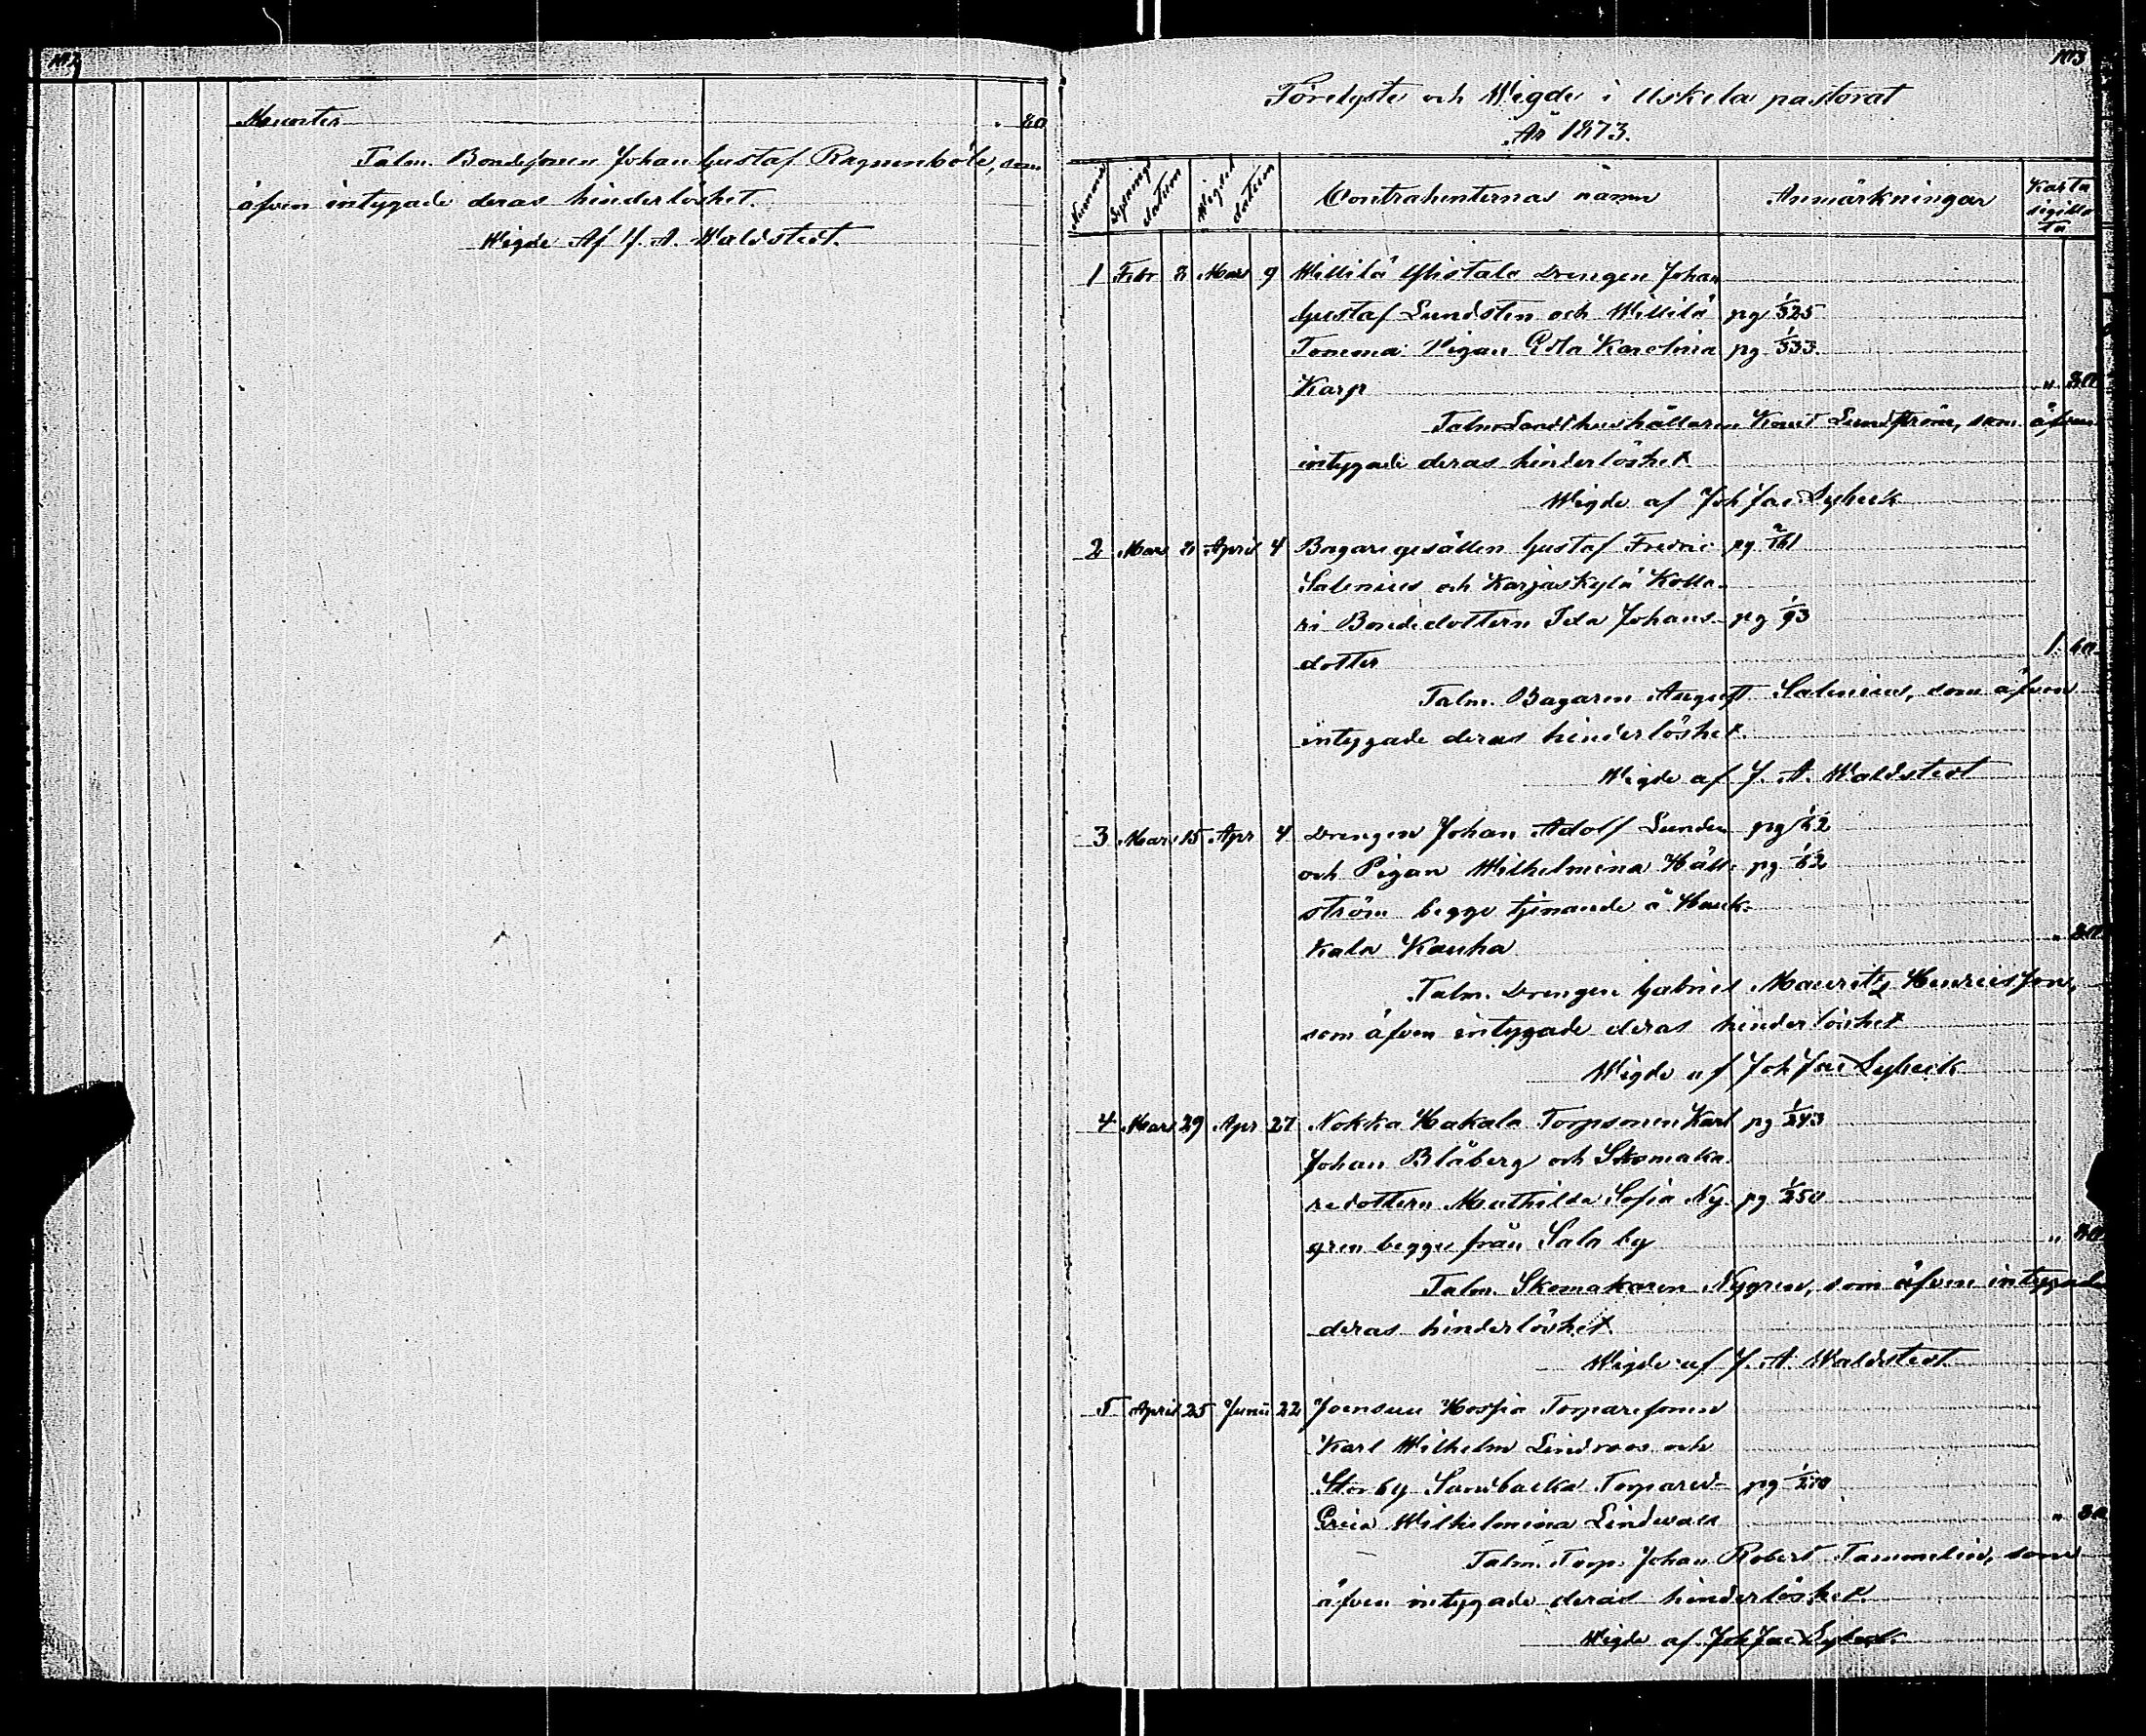 Munter . 80
Talm. Bondesonen Johan Gustaf Ragnenböle, som
äfven intygade deras hinderlöshet.
Wigde Af J. A. Waldstedt.
103
Förelyste och Wigde i Uskela pastorat
År 1873.
Nummer Lysnings datum Wigsel datum Contrahenternas namn Anmärkningar Karta sigilla ta
1 Febr 8 Mars 9 Willilä Ylistalo Drengen Johan
Gustaf Lundsten och Willilä pg 1/325
Tomma Pigan Edla Karolina pg 1/333.
Karp " 80
Talm Landthushållaren Knut Lundström, som äfven
intygade deras hinderlöshet
Wigde af Joh Jac Lyheck
2 Mars 8 April 4 Bagaregesällen Gustaf Fredric pg 2/761
Salenius och Karjaskylä Kolla-
ri Bondedottern Ida Johans- pg 1/93
dotter 1. 60
Talm. Bagaren August Salenius, som äfven
intygade deras hinderlöshet.
Wigde af J. A. Waldstedt
3 Mars 15 Apr 4 Drengen Johan Adolf Lunden pg 1/62
och Pigan Wilhelmina Häll- pg 1/62
ström begge tjenande å Hauk-
kala Kauha " 80
Talm. Drengen Gabriel Mauritz Henricsson,
som äfven intygade deras hinderlöshet
Wigde af Joh Jac Lyheck
4 Mars 29 Apr 27 Nokka Hakala Torpsonen Karl pg 1/243
Johan Blåberg och Skomaka-
redottern Mathilda Sofia Ny- pg 1/250
gren begge från Salo by " 80
Talm. Skomakaren Nygren, som äfven intygade
deras hinderlöshet.
Wigde af J. A. Waldstedt
5 April 25 Junii 22 Joensuu Torparesonen
Karl Wilhelm Lindroos och
Storby Sandbacka Torpared-
Wilhelmina Lindwall " 80
Talm. Torp. Johan Robert Tammelin, som
äfven intygade deras hinderlöshet.
Wigde af Joh Jac Lyheck